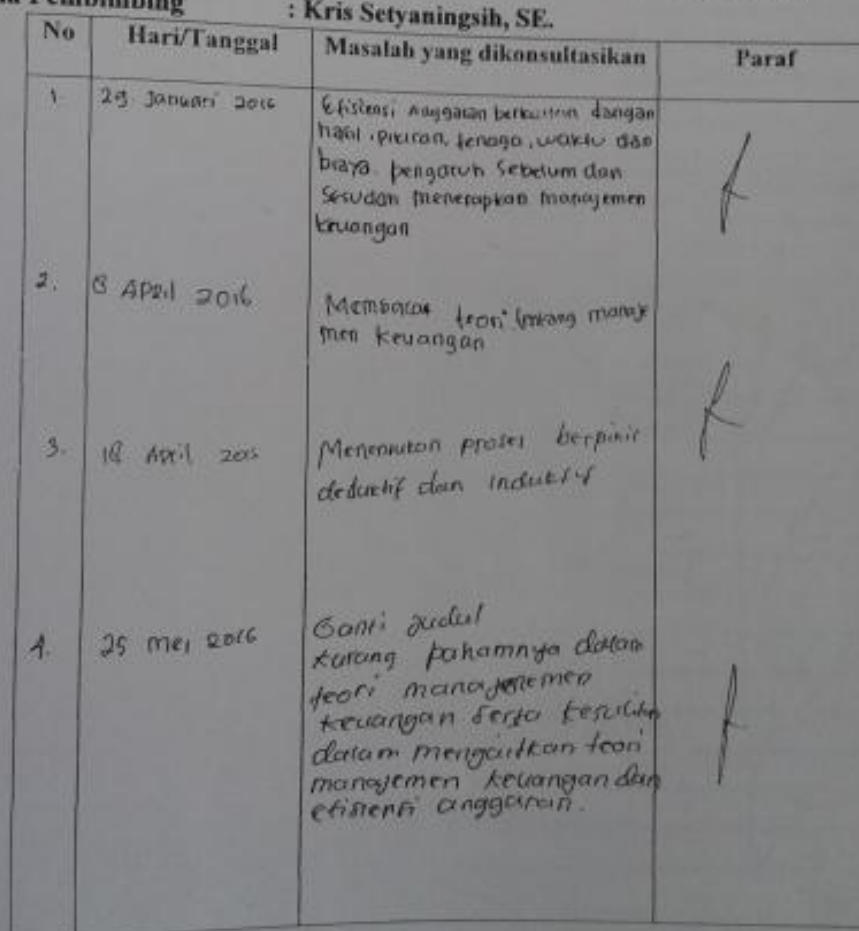 Pembimbing : Kris Setyaningsih, SE.
No Hari/Tanggal Masalah yang dikonsultasikan Paraf
1 29 Januari 2016 Efisiensi Anggaran berkaitan dangan
hasil, pikiran, tenaga, waktu dan
biaya. pengaruh Sebelum dan
Sesudah menerapkan manajemen
keuangan
2. 8 April 2016 Membaca teori tentang manaje
men keuangan
3. 18 April Menentukan proses berpikir
deduktif dan induktif
4. 25 mei 2016 Ganti judul
kurang pahamnya dalam
teori manajemen
keuangan serta kesulitan
dalam mengaitkan teori
manajemen keuangan dan
efisiensi anggaran.